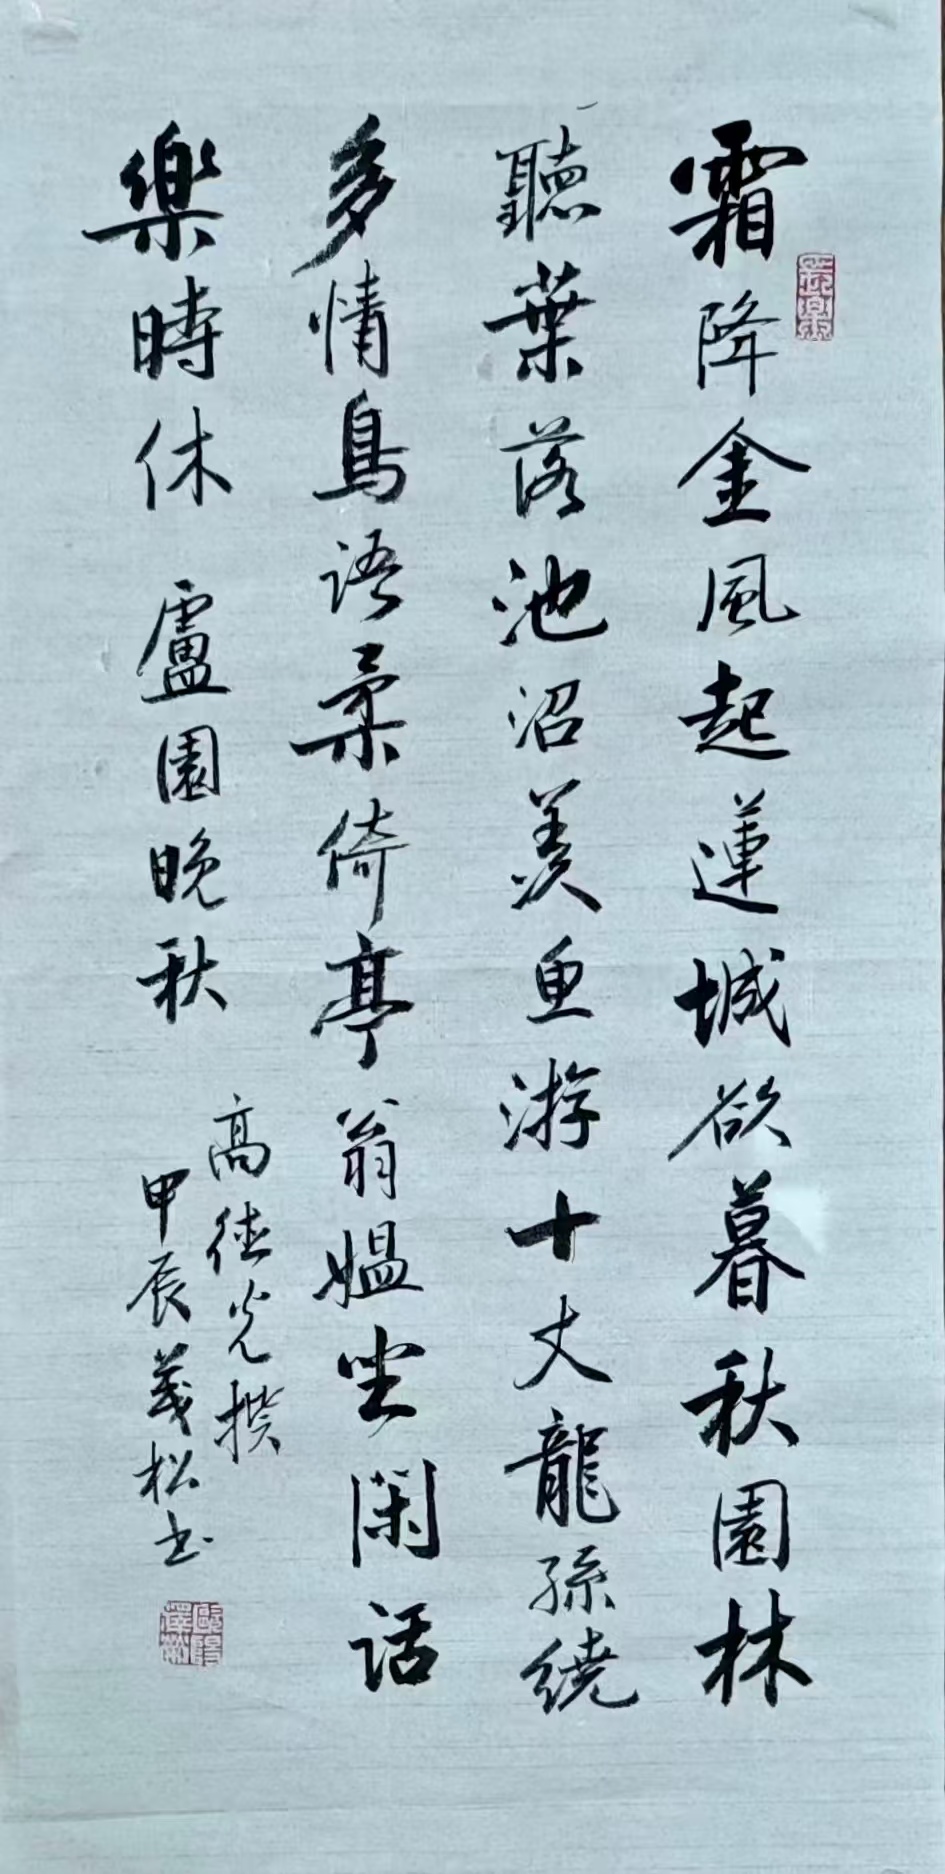 霜降金風起蓮城欲暮秋園林
聽葉落池沼羨魚游十丈龍孫繞
多情鳥語柔倚亭翁媼坐閑話
樂時休 盧園晚秋
高德光撰
甲辰義松书